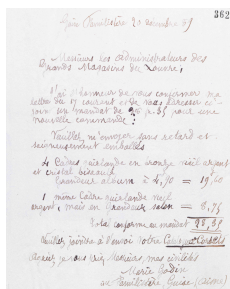 362
Guise Familistère 20 décembre 89
Messieurs les Administrateurs des
Grands Magasins du Louvre,
J'ai l'honneur de vous confirmer ma
lettre du 17 courant et de vous adresser ci-
joint un mandat de pour une
nouvelle commande
Veuillez m'envoyer sans retard et
soigneusement emballés
4 Cadres guirlande en bronze vieil argent
et cristal biseauté
Grandeur album à 4,90 = 19,60
1 même Cadre guirlande vieil
argent, mais en Grandeur salon = 8,75
Total conforme au mandat 28,35
Veuillez joindre à l'envoi votre
Agréez, je vous prie, Messieurs, mes civilités
Marie Godin
au Familistère Guise (Aisne)